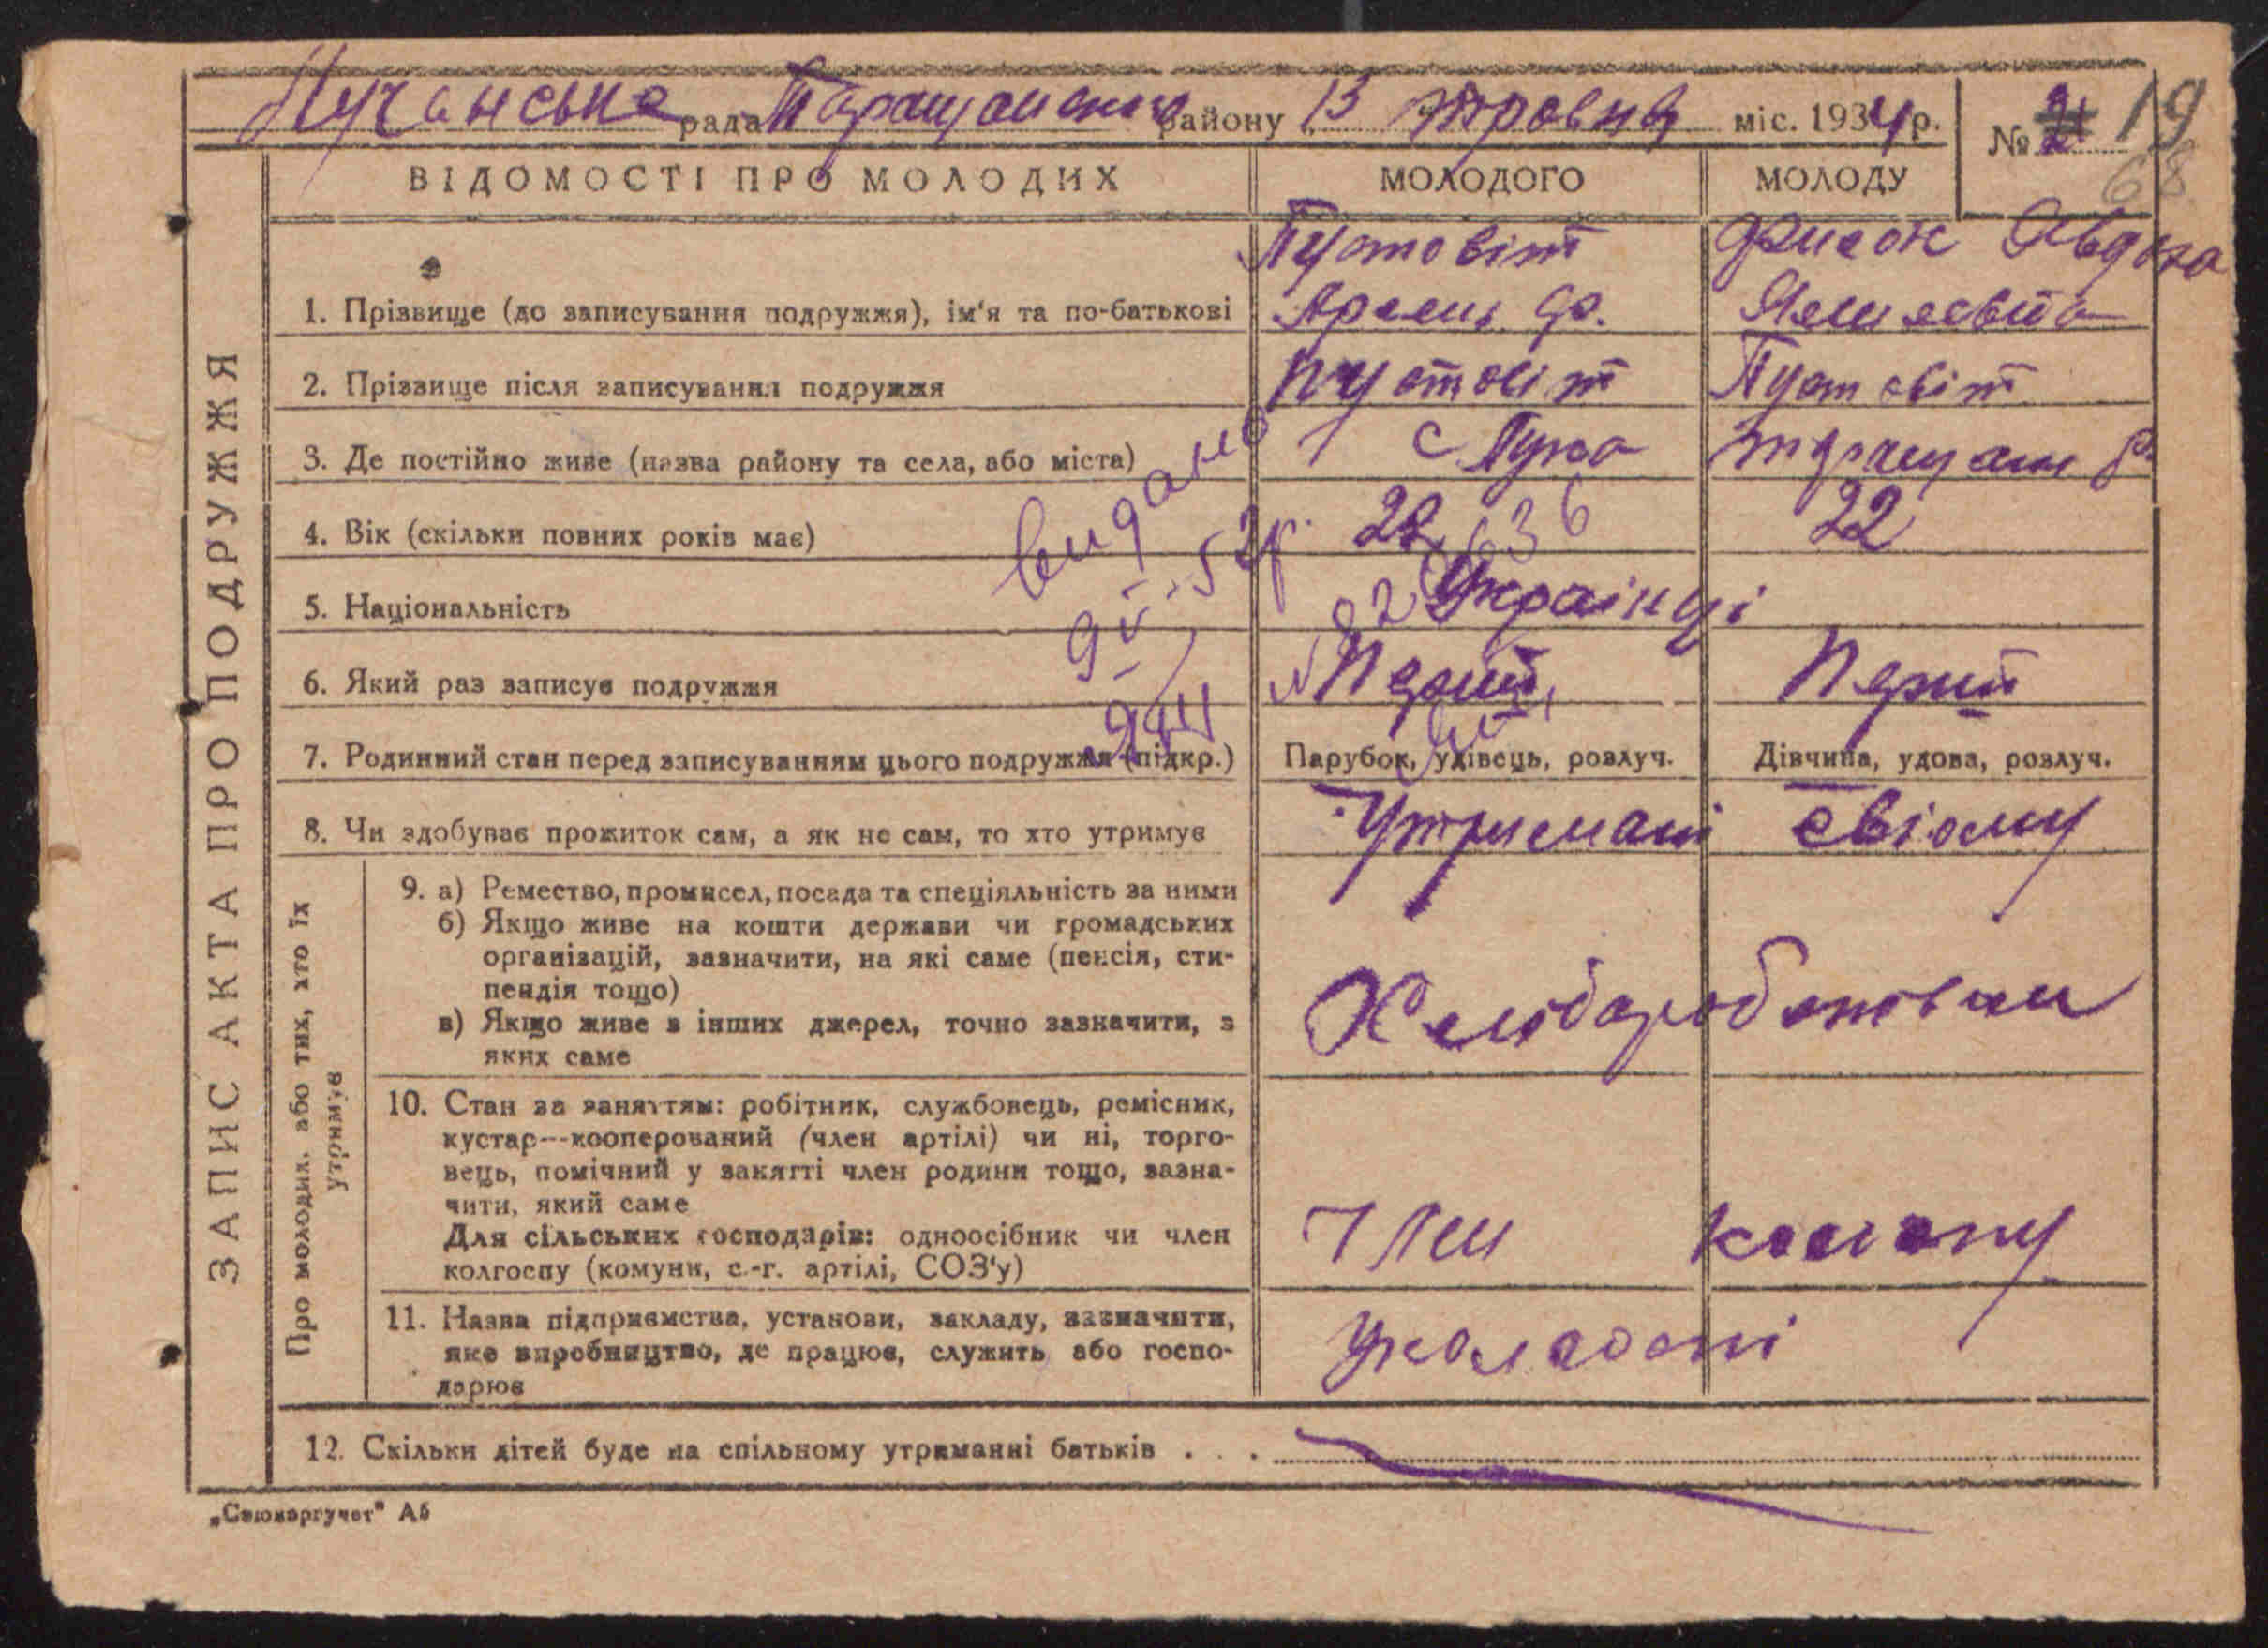 Лучанська рада Таращанського району 13 травня міс. 1934 р.
№ 21 19
68
ЗАПИС АКТА ПРО ПОДРУЖЖЯ
ВІДОМОСТІ ПРО МОЛОДИХ МОЛОДОГО МОЛОДУ
Пустовіт Явдоха
1. Прізвище (до записування подружжя), ім'я та по-батькові
2. Прізвище після записування подружжя Пустовіт Пустовіт
3. Де постійно живе (назва району та села, або міста) с Лука Таращан р.
4. Вік (скільки повних років має) 22
5. Національність Українці
6. Який раз записує подружжя Перший Перший
видано
7. Родинний стан перед записуванням цього подружжя (підкр.) Парубок, удівець, розлуч. Дівчина, удова, розлуч.
8. Чи здобуває прожиток сам, а як не сам, то хто утримує
Про молодих, або тих, хто їх утримує
9. а) Ремество, промисел, посада та спеціяльність за ними
б) Якщо живе на кошти держави чи громадських
організацій, зазначити, на які саме (пенсія, сти-
пендія тощо)
в) Якщо живе з інших джерел, точно зазначити, з
яких саме
10. Стан за заняттям: робітник, службовець, ремісник,
кустар---кооперований (член артілі) чи ні, торго-
вець, помічний у занятті член родини тощо, зазна-
чити, який саме
Для сільських господарів: одноосібник чи член
колгоспу (комуни, с.-г. артілі, СОЗ'у)
Член колгоспу
11. Назва підприємства, установи, закладу, зазначити,
яке виробництво, де працює, служить або госпо-
дарює
12. Скільки дітей буде на спільному утриманні батьків . . .
„Союзоргучет" А5